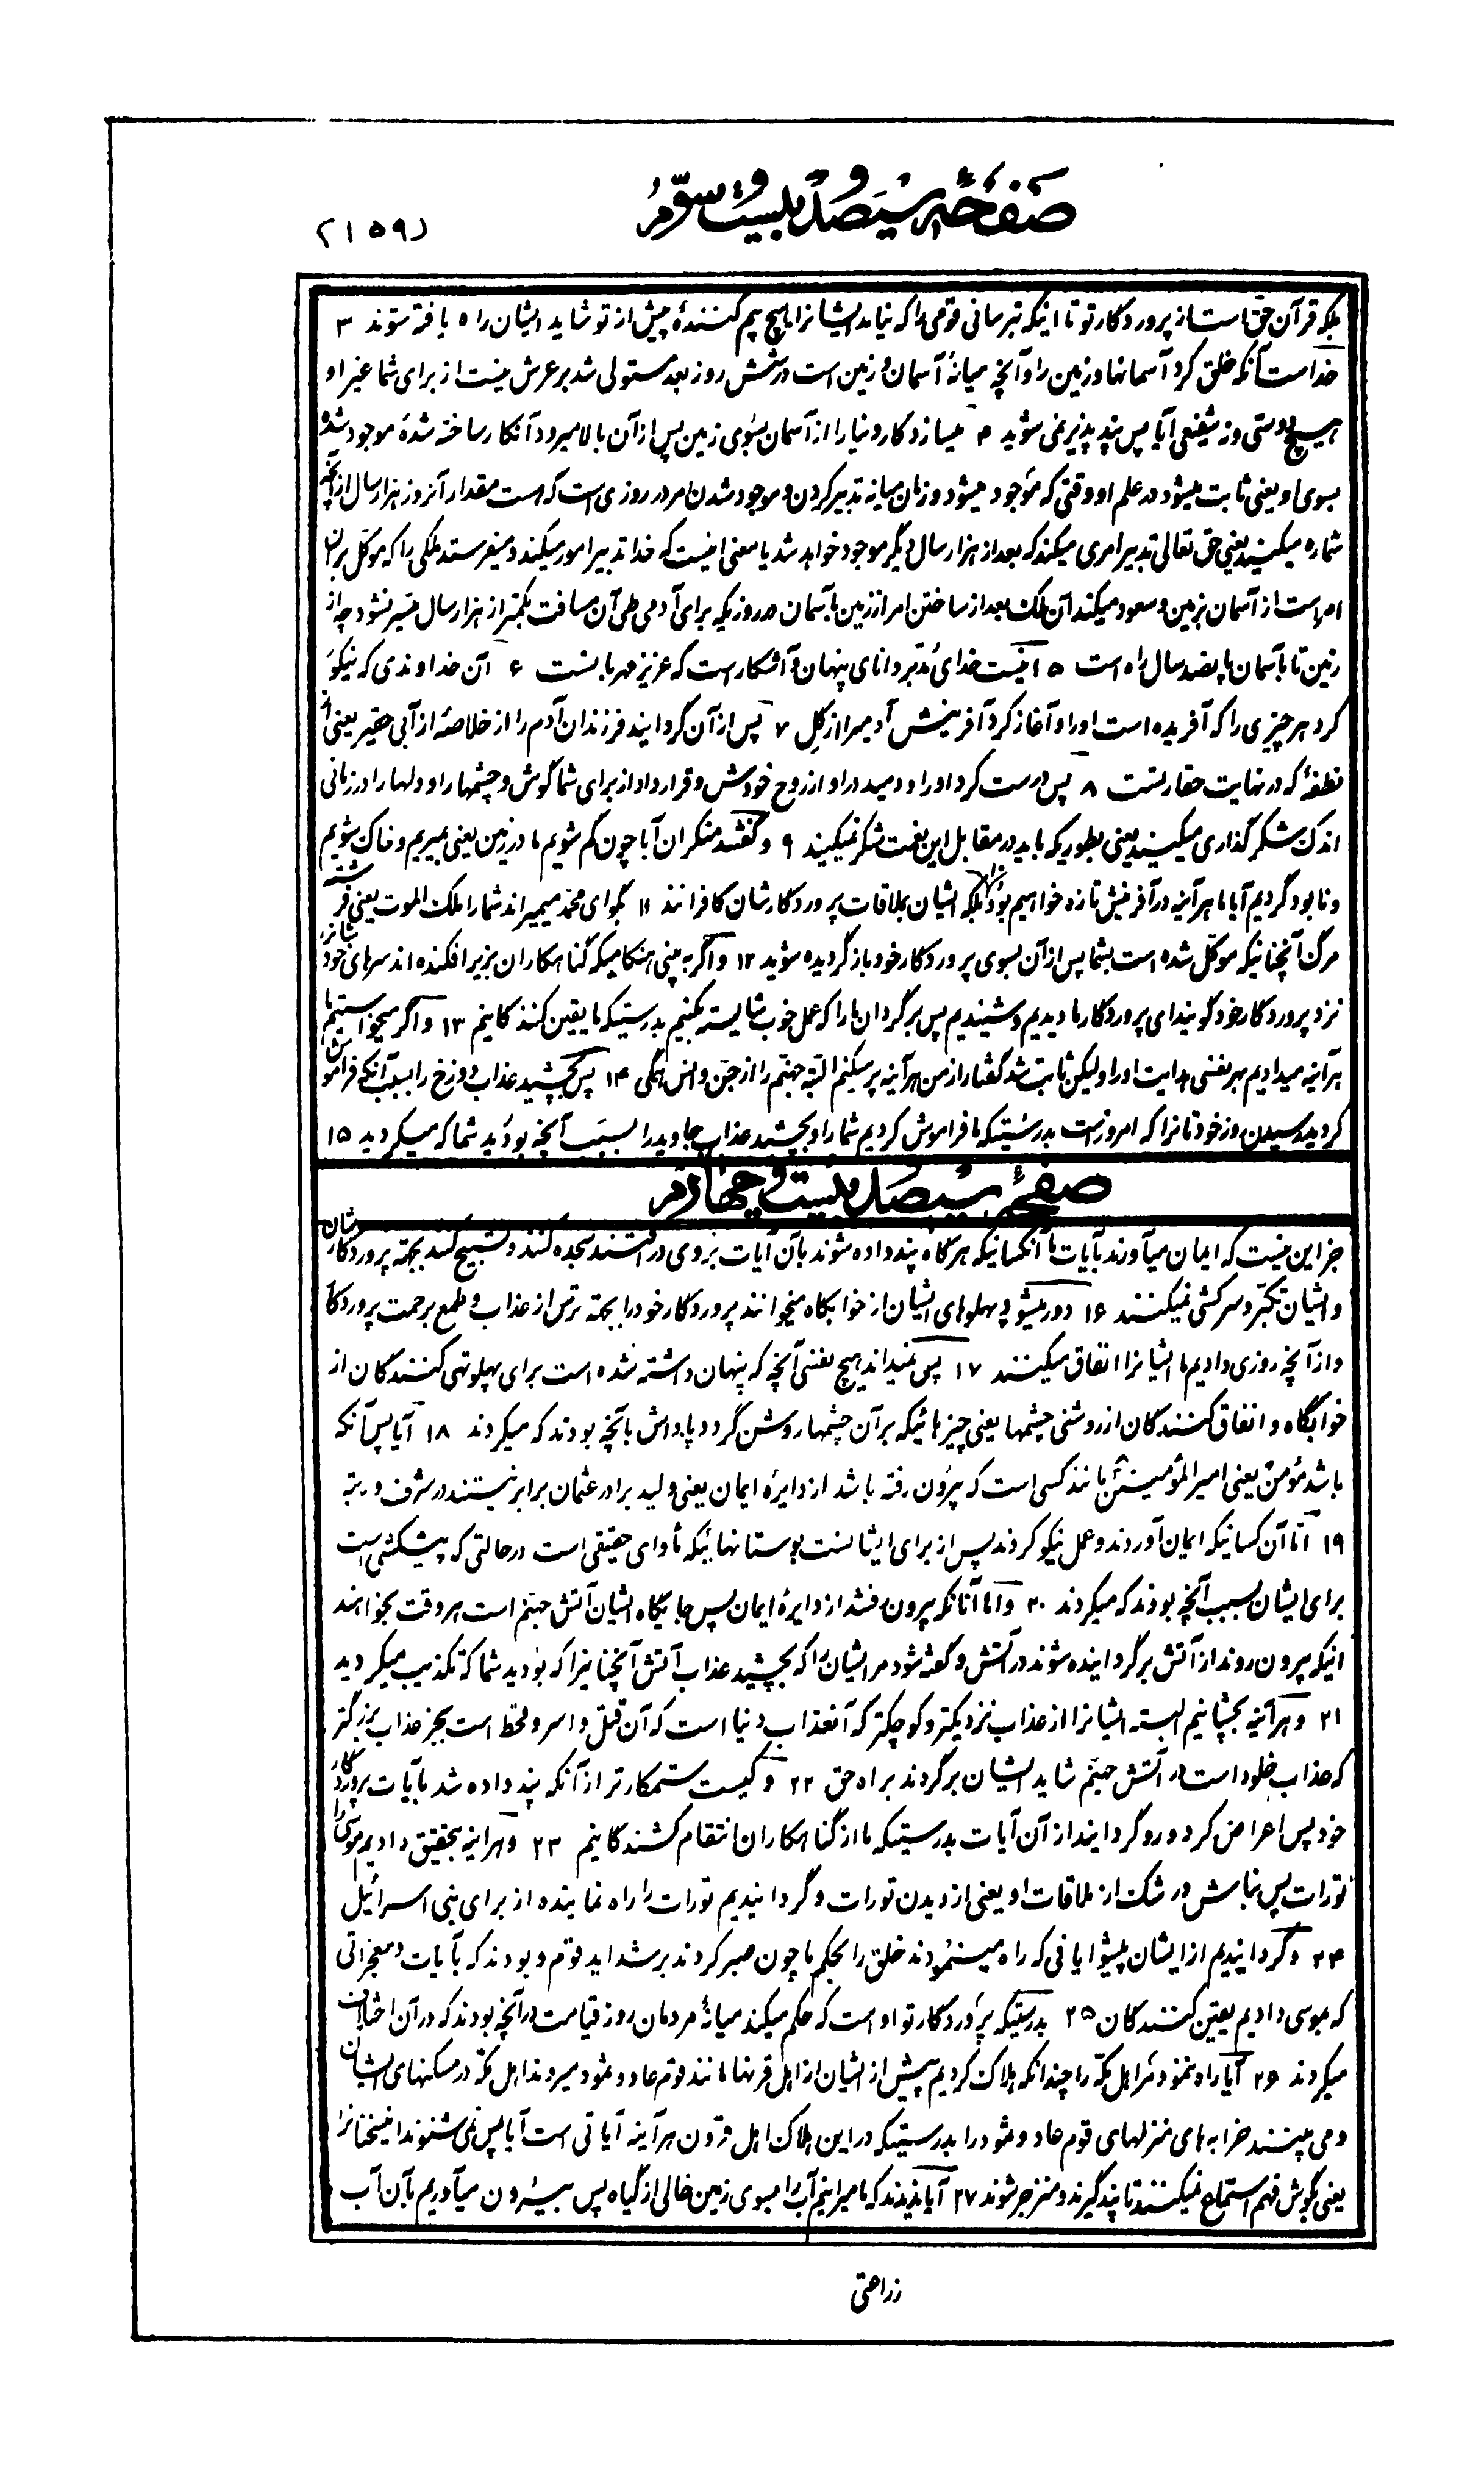 صفحه سیصد و بیست و سوم
(۱۵۹)
بلکه قرآن حق است از پروردگار تو تا اینکه بترسانی قومی را که نیامد ایشانرا هیچ بیم کنندهٔ پیش از تو شاید ایشان راه یافته شوند ۳
خداست آنکه خلق کرد آسمانها و زمین را و آنچه میانهٔ آسمان و زمین است در شش روز بعد مستولی شد بر عرش نیست از برای شما غیر او
هیچ دوستی و نه شفیعی آیا پس پند پذیر نمی شوید ۴ میسازد کار دنیا را از آسمان بسوی زمین پس از آن بالا میرود آنکار ساخته شدهٔ موجود شده
بسوی او یعنی ثابت میشود در علم او وقتی که موجود میشود و زمان میانه تدبیر کردن و موجود شدن امر در روزی است که هست مقدار آنروز هزار سال از آنچه
شماره میکنید یعنی حق تعالی تدبیر امری میکند که بعد از هزار سال دیگر موجود خواهد شد یا معنی اینست که خدا تدبیر امور میکند و میفرستد ملکی را که موکل بر آن
امر است از آسمان بزمین و صعود میکند آن ملک بعد از ساختن امر از زمین بآسمان در روزیکه برای آدمی طی آن مسافت بکمتر از هزار سال میسر نشود چه از
زمین تا بآسمان پانصد سال راه است ۵ اینست خدای مدبر دانای پنهان و آشکار است که عزیز مهربانست ۶ آن خداوندی که نیکو
کرد هر چیزی را که آفریده است او را و آغاز کرد آفرینش آدمیرا از گل ۷ پس از آن گردانید فرزندان آدم را از خلاصهٔ از آبی حقیر یعنی از
نطفهٔ که در نهایت حقارتست ۸ پس درست کرد او را و دمید در او از روح خودش و قرار داد از برای شما گوش و چشمها را و دلها را در زمانی
اندک شکر گذاری میکنید یعنی بطوریکه باید در مقابل این نعمت شکر نمیکنید ۹ و گفتند منکران آیا چون گم شویم ما در زمین یعنی بمیریم و خاک شویم
و نابود گردیم آیا ما هر آینه در آفرینش تازه خواهیم بود ۱۰ بلکه ایشان بملاقات پروردگارشان کافرانند ۱۱ بگو ای محمد میمیراند شما را ملک الموت یعنی فرشته
مرگ آنچنانیکه موکل شده است بشما پس از آن بسوی پروردگار خود باز گردیده شوید ۱۲ و اگر به بینی هنگامیکه گناهکاران بزیر افکنده اند سرهای خودشانرا
نزد پروردگار خود گویند ای پروردگار ما دیدیم و شنیدیم پس برگردان ما را که عمل خوب شایسته بکنیم بدرستیکه ما یقین کنندکانیم ۱۳ و اگر میخواستیم ما
هر آینه میدادیم بهر نفسی هدایت او را و لیکن ثابت شد گفتار از من هر آینه پر میکنم البته جهنم را از جن و انس همگی ۱۴ پس بچشید عذاب دوزخ را بسبب آنکه فراموش
کردید رسیدن روز خودتانرا که امروز است بدرستیکه ما فراموش کردیم شما را و بچشید عذاب جاوید را بسبب آنچه بودید شما که میکردید ۱۵
صفحه سیصد و بیست و چهارم
جز این نیست که ایمان میآورند بآیات ما آنکسانیکه هرگاه پند داده شوند بآن آیات بروی در افتند سجده کنند و تسبیح کنند بجهته پروردگارشان
و ایشان تکبر و سرکشی نمیکنند ۱۶ دور میشود پهلوهای ایشان از خوابگاه میخوانند پروردگار خود را بجهته ترس از عذاب و طمع برحمت پروردگار
و از آنچه روزی دادیم ما ایشانرا انفاق میکنند ۱۷ پس نمیداند هیچ نفسی آنچه که پنهان داشته شده است برای پهلو تهی کنندگان از
خوابگاه و انفاق کنندکان از روشنی چشمها یعنی چیزهائیکه بر آن چشمها روشن گردد پاداش بآنچه بودند که میکردند ۱۸ آیا پس آنکه
باشد مؤمن یعنی امیر المؤمنین مانند کسی است که بیرون رفته باشد از دایرهٔ ایمان یعنی ولید برادر عثمان برابر نیستند در شرف و رتبه
۱۹ اما آن کسانیکه ایمان آوردند و عمل نیکو کردند پس از برای ایشانست بوستانهائیکه مأوای حقیقی است در حالتی که پیشکشی است
برای ایشان بسبب آنچه بودند که میکردند ۲۰ و اما آنانکه بیرون رفتند از دایرهٔ ایمان پس جایگاه ایشان آتش جهنم است هر وقت بخواهند
اینکه بیرون روند از آتش برگردانیده شوند در آتش و گفته شود مر ایشان را که بچشید عذاب آتش آنچنانیرا که بودید شما که تکذیب میکردید
۲۱ و هر آینه بچشانیم البته ایشانرا از عذاب نزدیکتر و کوچکتر که آنعذاب دنیا است که آن قتل و اسر و قحط است بجز عذاب بزرگتر
که عذاب خلود است در آتش جهنم شاید ایشان برگردند براه حق ۲۲ و کیست ستمکارتر از آنکه پند داده شد بآیات پروردگار
خود پس اعراض کرد و رو گردانید از آن آیات بدرستیکه ما از گناهکاران انتقام کشندکانیم ۲۳ و هر اینه بتحقیق دادیم موسی را
تورات پس مباش در شک از ملاقات او یعنی از دیدن تورات و گردانیدیم تورات را راه نماینده از برای بنی اسرائیل
۲۴ و گردانیدیم از ایشان پیشوایانی که راه مینمودند خلق را بحکم ما چون صبر کردند بر شداید قوم و بودند که بآیات و معجزاتی
که بموسی دادیم یقین کنندکان ۲۵ بدرستیکه پروردگار تو او است که حکم میکند میانهٔ مردمان روز قیامت در آنچه بودند که در آن اختلاف
میکردند ۲۶ آیا راه ننمود مر اهل مکه را چندانکه هلاک کردیم پیش از ایشان از اهل قرنها مانند قوم عاد و ثمود میروند اهل مکه در مسکنهای ایشان
و می بینند خرابه های منزلهای قوم عاد و ثمود را بدرستیکه در این هلاک اهل قرون هر آینه آیاتی است آیا پس نمی شنوند این سخنانرا
یعنی بگوش فهم استماع نمیکنند تا پند گیرند و منزجر شوند ۲۷ آیا ندیدند که ما میرانیم آب را بسوی زمین خالی از گیاه پس بیرون میآوریم بآن آب
زراعتی